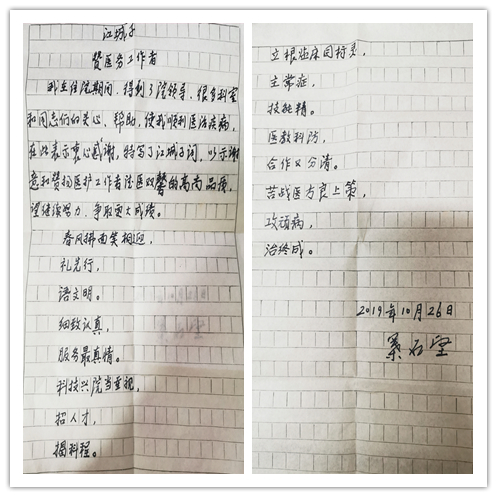 江城子
赞医务工作者
我在住院期间，得到了院领导、很多科室
和同志们的关心、帮助，使我顺利医治疾病，
在此表示衷心感谢，特写了江城子词，以示谢
意和赞扬医护工作者德医双馨的高尚品德，
望继续努力，争取更大成绩。
春风拂面笑相迎，
礼先行，
语文明。
细致认真，
服务最真情。
科技兴院当重视，
招人才，
攝科程。
立根临床同村灵，
主常症，
技托精。
医教科防，
合作又分清。
苦战医方良上策，
攻顽病，
治终成。
2019年10月26日